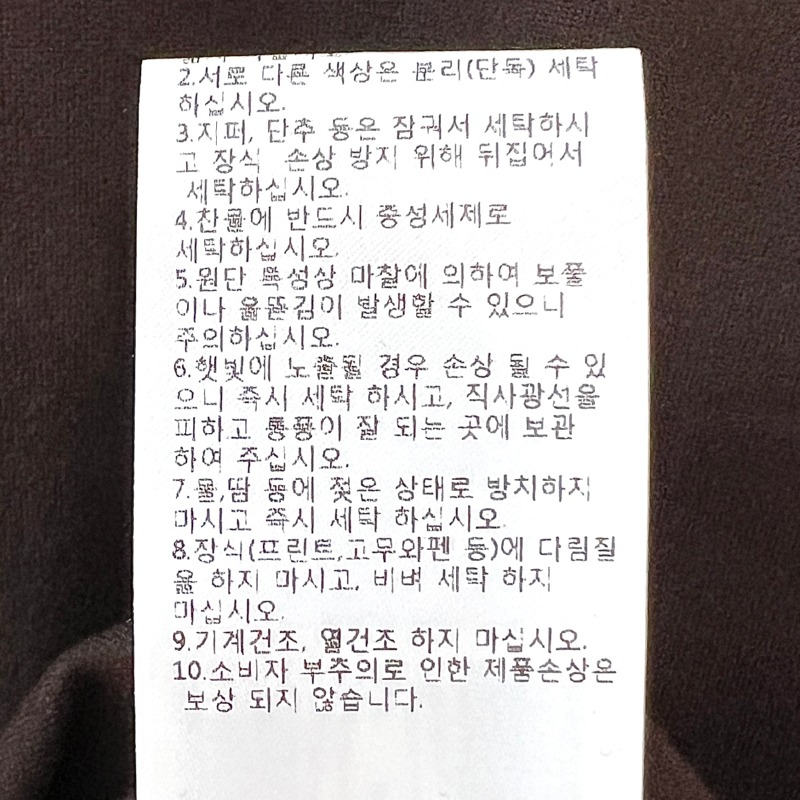 2.서로 다른 색상은 분리(단독) 세탁
하십시오.
3.지퍼, 단추 등은 잠궈서 세탁하시
고 장식 손상 방지 위해 뒤집어서
세탁하십시오.
4.찬물에 반드시 중성세제로
세탁하십시오.
5.원단 특성상 마찰에 의하여 보풀
이나 올뜯김이 발생할 수 있으니
주의하십시오.
6.햇빛에 노출될 경우 손상 될 수 있
으니 즉시 세탁 하시고, 직사광선을
피하고 통풍이 잘 되는 곳에 보관
하여 주십시오.
7.물,땀 등에 젖은 상태로 방치하지
마시고 즉시 세탁 하십시오.
8.장식(프린트,고무와펜 등)에 다림질
을 하지 마시고, 비벼 세탁 하지
마십시오.
9.기계건조, 열건조 하지 마십시오.
10.소비자 부주의로 인한 제품손상은
보상 되지 않습니다.